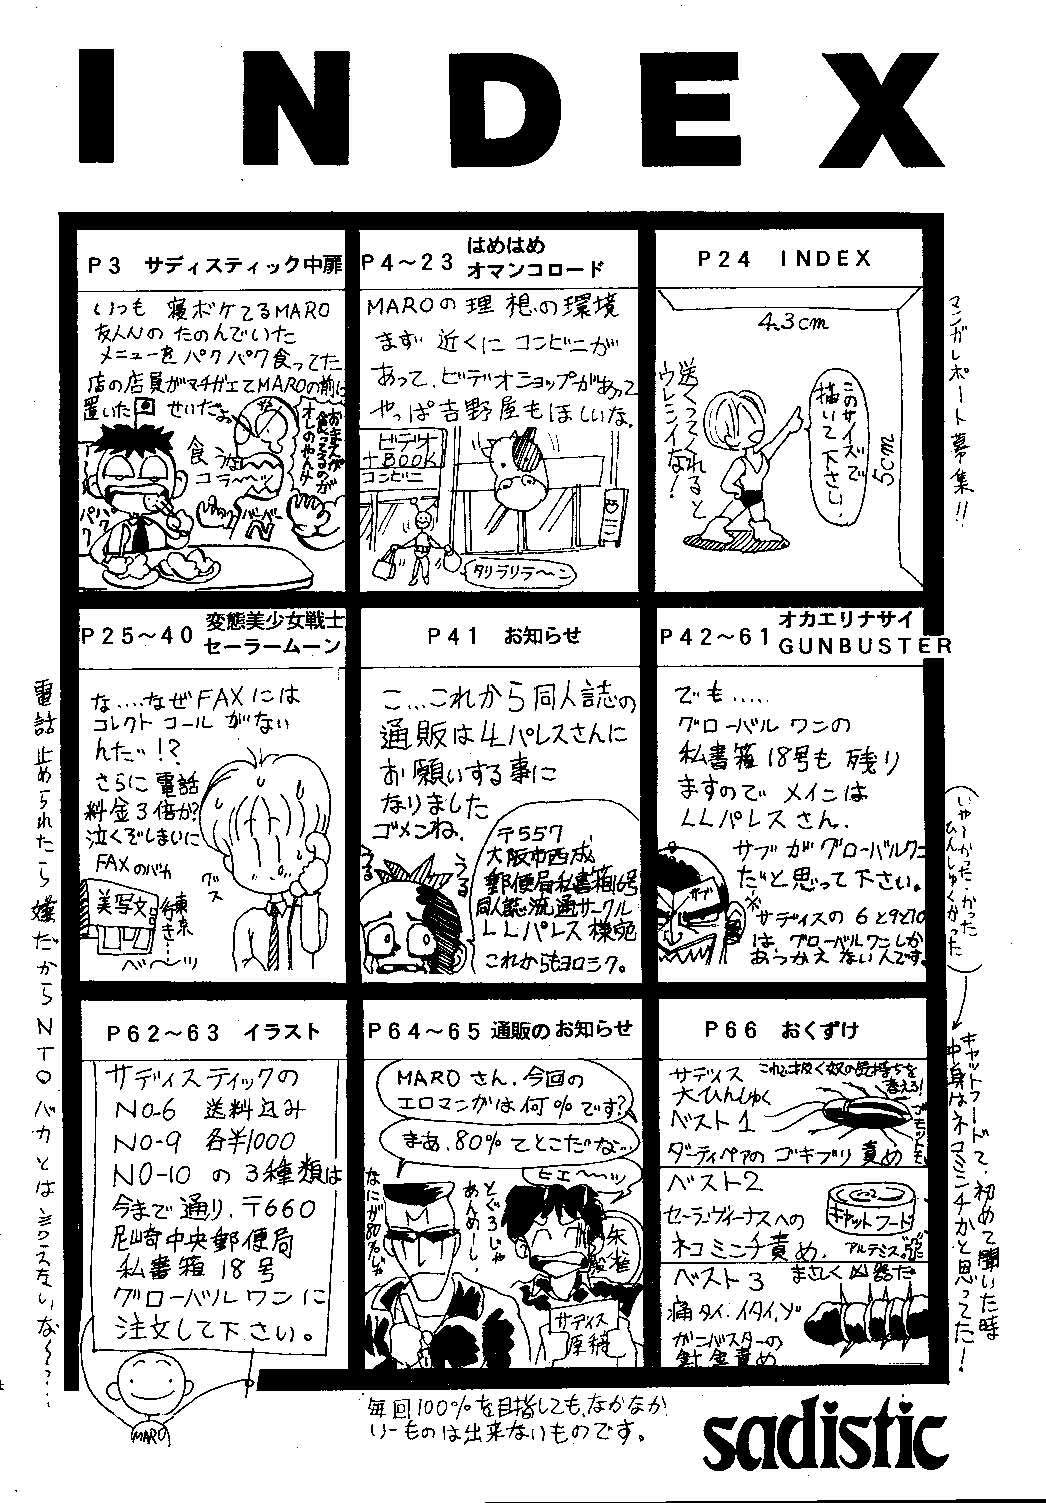 INDEX
P3 サディスティック中扉
いつも 寝ボケてるMARO
友人んの たのんでいた
メニューを パクパク食ってた
店の店員がマチガエてMAROの前に
置いた せいだぉ
おまえが
食ってるのが
オレのやんけ
食うな
コラ〜〜ッ
パク
パク
P4〜23 はめはめ
オマンコロード
MAROの理想の環境
まず 近くに コンビニが
あって、ビデオショップがあって
やっぱ吉野屋もほしいな。
ビデオ
+BOOK
コンビニ
タリラリラ〜〜ン
P24 INDEX
4.3cm
5cm
このサイズで
描いて下さい。
送ってくれると
ウレシイな!
マンガレポート募集!!
P25〜40 変態美少女戦士
セーラームーン
な....なぜFAXには
コレクトコールがない
んだ!!?
さらに電話
料金3倍か?
泣くぞしまいに
FAXのバカ
グス
美写文
東京
行き
ベ〜〜ンッ
電話止められたら嫌だからNTOバカとは言えないな〜〜?...
P41 お知らせ
こ...これから同人誌の
通販はLLパレスさんに
お願いする事に
なりました
ゴメンね。
うる
うる
〒557
大阪市西成
郵便局私書箱16号
同人誌流通サークル
LLパレス 様宛
これからもヨロシク。
P42〜61 オカエリナサイ
GUNBUSTER
でも.....
グローバルワンの
私書箱18号も残り
ますので メインは
LLパレスさん、
サブがグローバルワン
だと思って下さい。
サブ
※サディスの6と9と10
は、グローバルワンしか
あつかえないんです。
いや〜かった・かった
ひんしゅくかった
キャットフードて、初めて聞いた時
中身はネコミンチかと思ってた!
P62〜63 イラスト
サディスティックの
NO-6 送料込み
NO-9 各半1000
NO-10 の3種類は
今まで通り、〒660
尼崎中央郵便局
私書箱18号
グローバルワンに
注文して下さい。
MARO
P64〜65 通販のお知らせ
MAROさん、今回の
エロマンガは何%です?
まあ、80%てとこだな...
ヒエ〜〜ッ
なにが80%じゃ
とぐろじゃ
あんめーし
M
朱雀
サディス
原稿
毎回100%を目指しても、なかなか
りーものは出来ないものです。
P66 おくずけ
サディス
大ひんしゅく
ベスト1
これに抜く奴の気持ちを
考える!
ダーティペアの ゴキブリ責め
ベスト2
セーラーヴィーナスへの
ネコミンチ責め。
キャットフード
アルテミス
ベスト3
まさしく凶器だ
痛タイ、イタイ、ゾ
ガンバスターの
針金責め
sadistic